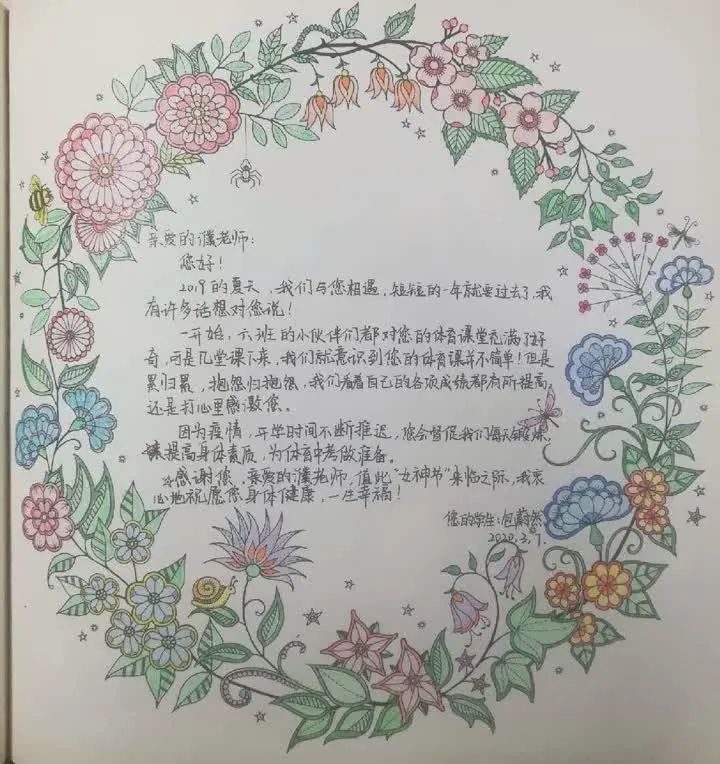 亲爱的濮老师：
您好！
2019的夏天，我们与您相遇，短短的一年就要过去了，我
有许多话想对您说！
一开始，六班的小伙伴们都对您的体育课堂充满了好
奇，可是几堂课下来，我们就意识到您的体育课并不简单！但是
累归累，抱怨归抱怨，我们看着自己的各项成绩都有所提高，
还是打心里感激您。
因为疫情，开学时间不断推迟，您会督促我们每天锻炼，
提高身体素质，为体育中考做准备。
感谢您，亲爱的濮老师，值此“女神节”来临之际，我衷
心地祝愿您身体健康，一生幸福！
您的学生：包蔚然
2020.3.7.